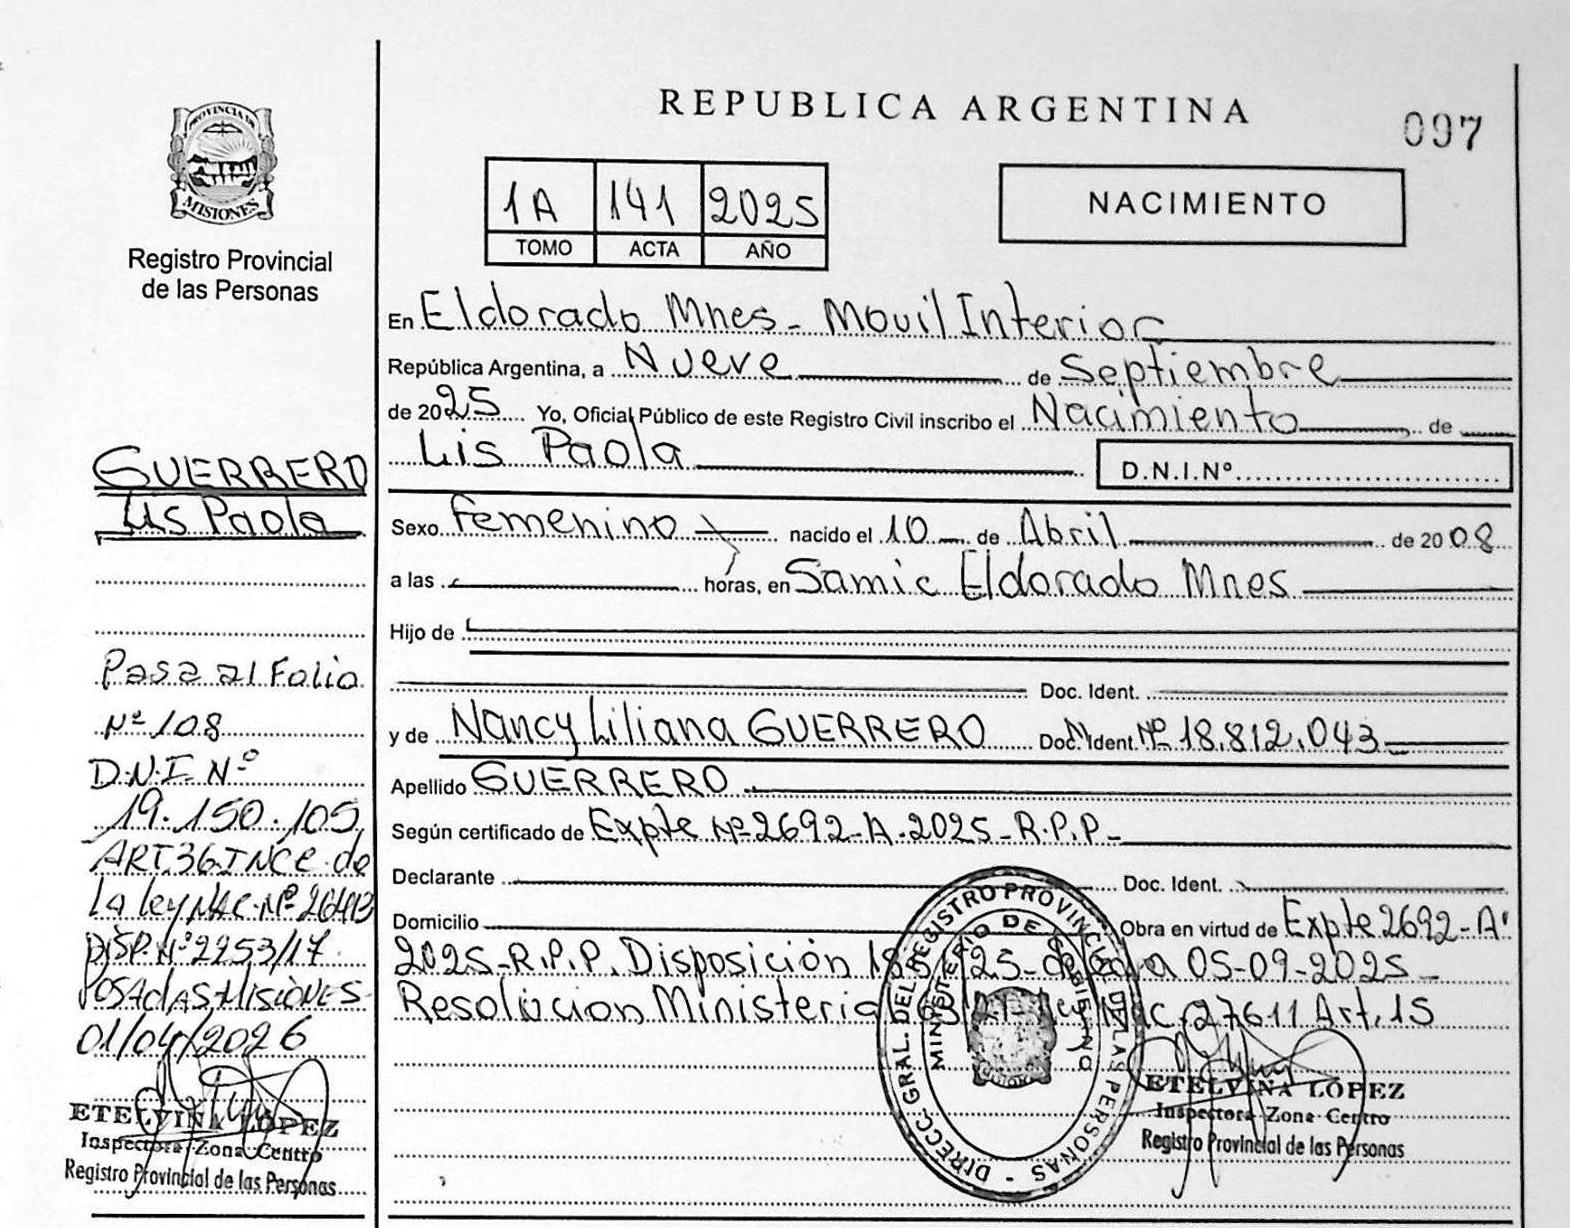 REPUBLICA ARGENTINA
097
PROVINCIA DE
MISIONES
Registro Provincial
de las Personas
1A 141 2025
TOMO ACTA AÑO
NACIMIENTO
En Eldorado Mnes - Movil Interior
República Argentina, a Nueve de Septiembre
de 2025 Yo, Oficial Público de este Registro Civil inscribo el Nacimiento de
Lis Paola D.N.I.Nº
Sexo Femenino nacido el 10 de Abril de 2008
a las horas, en Samic Eldorado Mnes
Hijo de
Doc. Ident.
y de Nancy Liliana GUERRERO Doc. Ident. Nº 18.812.043
Apellido GUERRERO
Según certificado de Expte Nº 2692-A-2025-R.P.P-
Declarante Doc. Ident.
Domicilio Obra en virtud de Expte 2692-A-
2025-R.P.P. Disposición 05-09-2025
Resolucion Ministerial 27611 Art. 15
GUERRERO
Lis Paola
Pasa al Folio
Nº 108
D.N.I. Nº
19.150.105,
ART.36 INC C de
La ley NAC. Nº 26413
DISP. Nº 2253/17.
POSADAS MISIONES
01/04/2026
ETELVINA LOPEZ
Inspectora Zona Centro
Registro Provincial de las Personas
DIRECC. GRAL. DEL REGISTRO PROVINCIAL DE LAS PERSONAS
MINISTERIO DE GOBIERNO
ETELVINA LOPEZ
Inspectora Zona Centro
Registro Provincial de las Personas